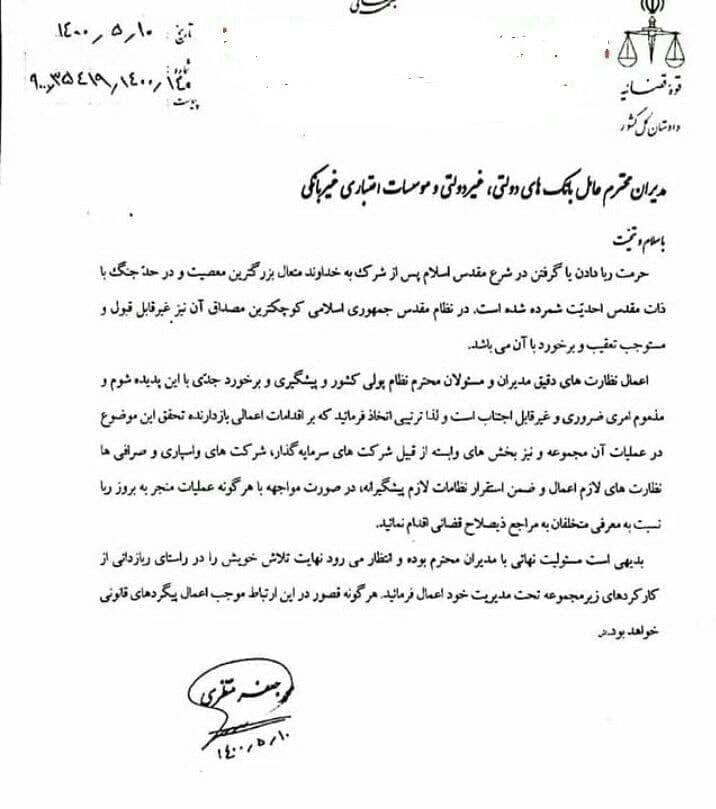 تعالی
تاریخ : ۱۴۰۰٫۵٫۱۰
شماره : ۹۰۰۰٫۳۵۴۱۹٫۱۴۰۰٫۱۴۰
پیوست :
قوه قضائیه
دادستان کل کشور
مدیران محترم عامل بانک های دولتی، غیردولتی و موسسات اعتباری غیربانکی
باسلام و تحیت
حرمت ربا دادن یا گرفتن در شرع مقدس اسلام پس از شرک به خداوند متعال بزرگترین معصیت و در حدّ جنگ با
ذات مقدس احدیّت شمرده شده است. در نظام مقدس جمهوری اسلامی کوچکترین مصداق آن نیز غیرقابل قبول و
مستوجب تعقیب و برخورد با آن می باشد.
اعمال نظارت های دقیق مدیران و مسئولان محترم نظام پولی کشور و پیشگیری و برخورد جدّی با این پدیده شوم و
مذموم امری ضروری و غیرقابل اجتناب است و لذا ترتیبی اتخاذ فرمائید که بر اقدامات اعمالی بازدارنده تحقق این موضوع
در عملیات آن مجموعه و نیز بخش های وابسته از قبیل شرکت های سرمایه‌گذار، شرکت های واسپاری و صرافی ها
نظارت های لازم اعمال و ضمن استقرار نظامات لازم پیشگیرانه، در صورت مواجهه با هرگونه عملیات منجر به بروز ربا
نسبت به معرفی متخلفان به مراجع ذیصلاح قضائی اقدام نمائید.
بدیهی است مسئولیت نهائی با مدیران محترم بوده و انتظار می رود نهایت تلاش خویش را در راستای ربازدائی از
کارکردهای زیرمجموعه تحت مدیریت خود اعمال فرمائید. هرگونه قصور در این ارتباط موجب اعمال پیگردهای قانونی
خواهد بود.
محمد جعفر منتظری
۱۴۰۰٫۵٫۱۰